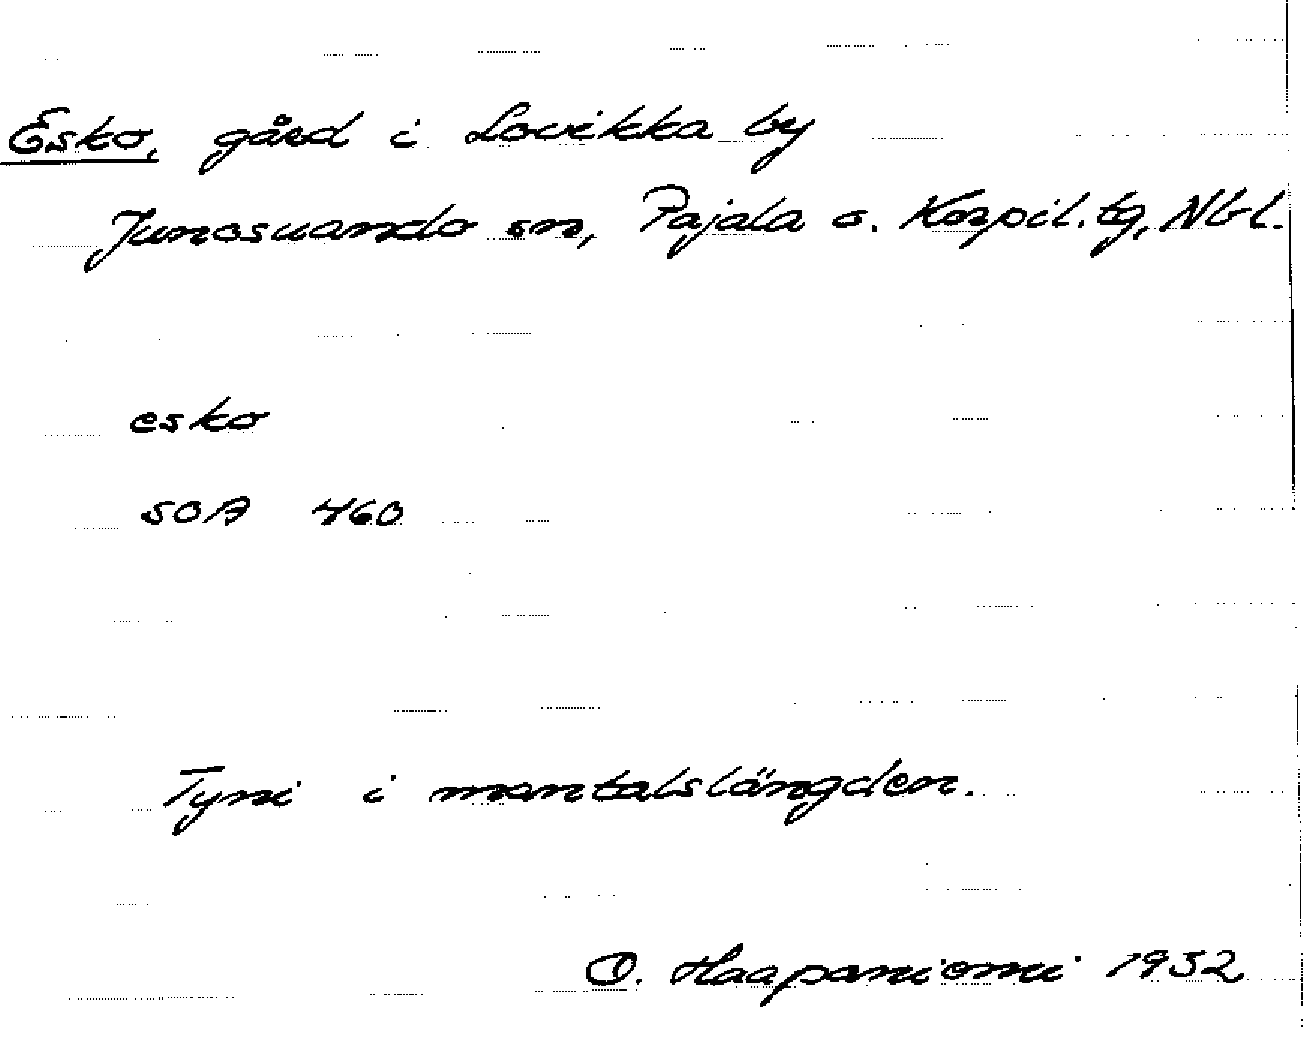 Esko, gård i Lovikka by
Junosuando sn, Pajala o. Korpil. tg, Nbl.
esko
SOA 460
Tyni i mantalslängden.
O. Haapaniemi 1932